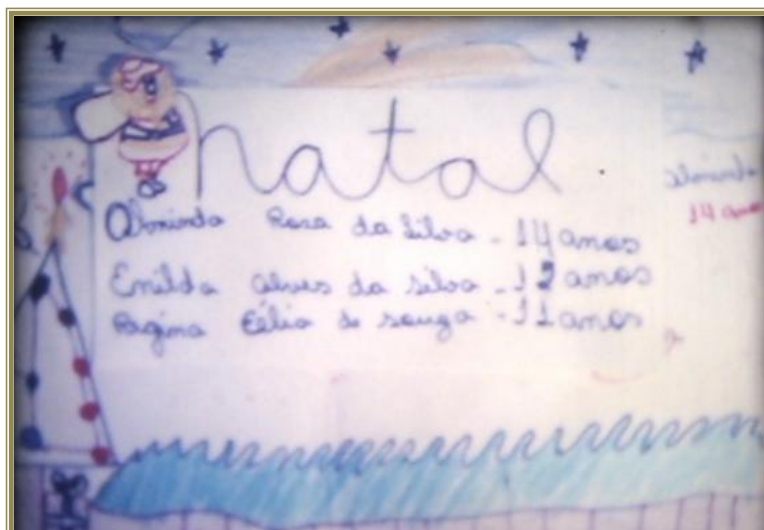 natal
Alminda Rosa da Silva - 14 anos
Enilda Alves da Silva - 12 anos
Regina Célia de Souza - 11 anos
Alminda
14 anos